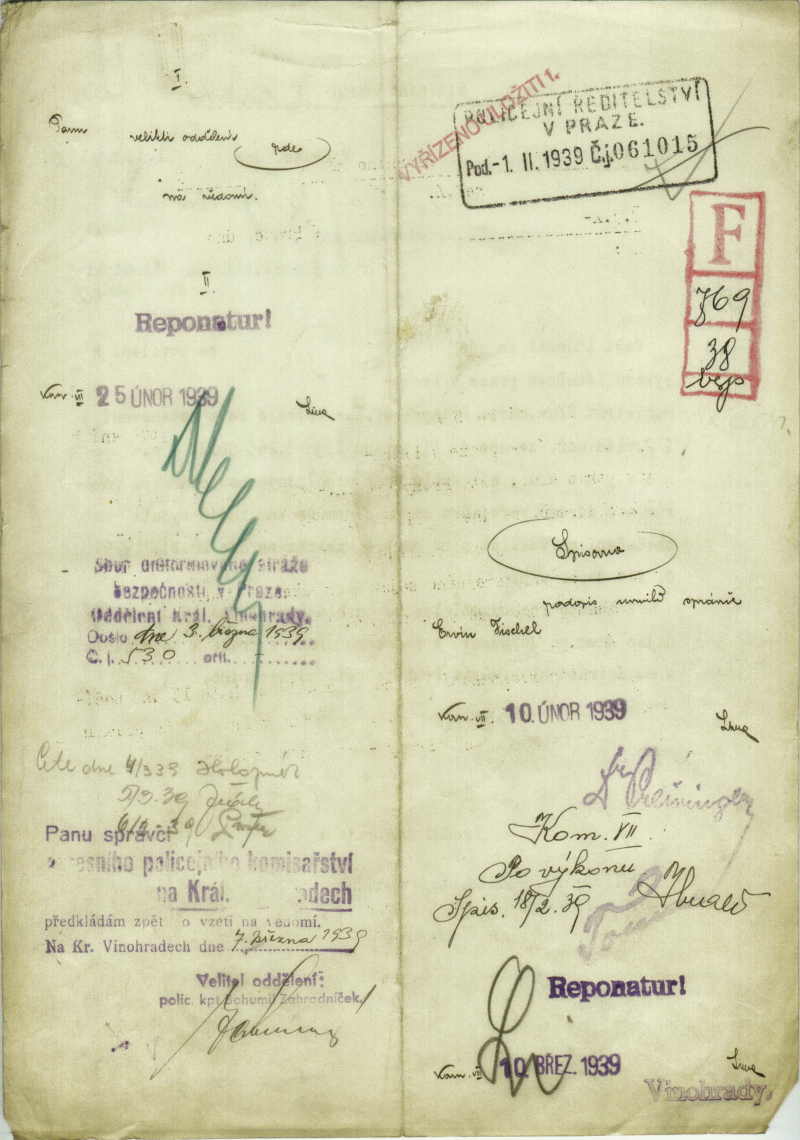 I.
Panu veliteli oddělení
zde
na vědomí.
II.
Reponatur!
Kom. VII 25 ÚNOR 1939
Sbor uniformované stráže
bezpečnosti v Praze.
Oddělení Král. Vinohrady.
Došlo dne 3. března 1939
Č. j. 530 příl.
Čte dne 4/3 39
5/3.39
6/3.39
Panu správci
okresního policejního komisařství
na Král. Vinohradech
předkládám zpět po vzetí na vědomí.
Na Kr. Vinohradech dne 7. března 1939
Velitel oddělení:
polic. kpt. Bohumil Zahradníček
VYŘÍZENO ULOŽITI 1.
POLICEJNÍ ŘEDITELSTVÍ
V PRAZE.
Pod. -1. II. 1939 Č.j. 061015
F
769
38
bezp
Spisovna
podepis
Ervin Fischel
Kom. VII. 10. ÚNOR 1939
Dr. Preininger
Kom. VII.
Po výkonu
Spis. 18/2. 39
Reponatur!
Kom. VII 10. BŘEZ. 1939
Vinohrady.